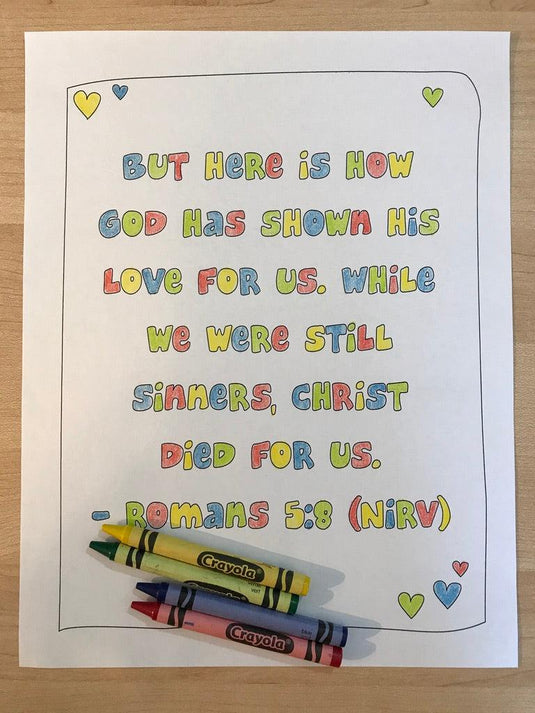 BUT HERE iS HOW
GOD HAS SHOWN HiS
LOVE FOR US. WHiLE
WE WERE STiLL
SiNNERS, CHRiST
DiED FOR US.
- ROMANS 5:8 (NiRV)
Crayola
Crayola